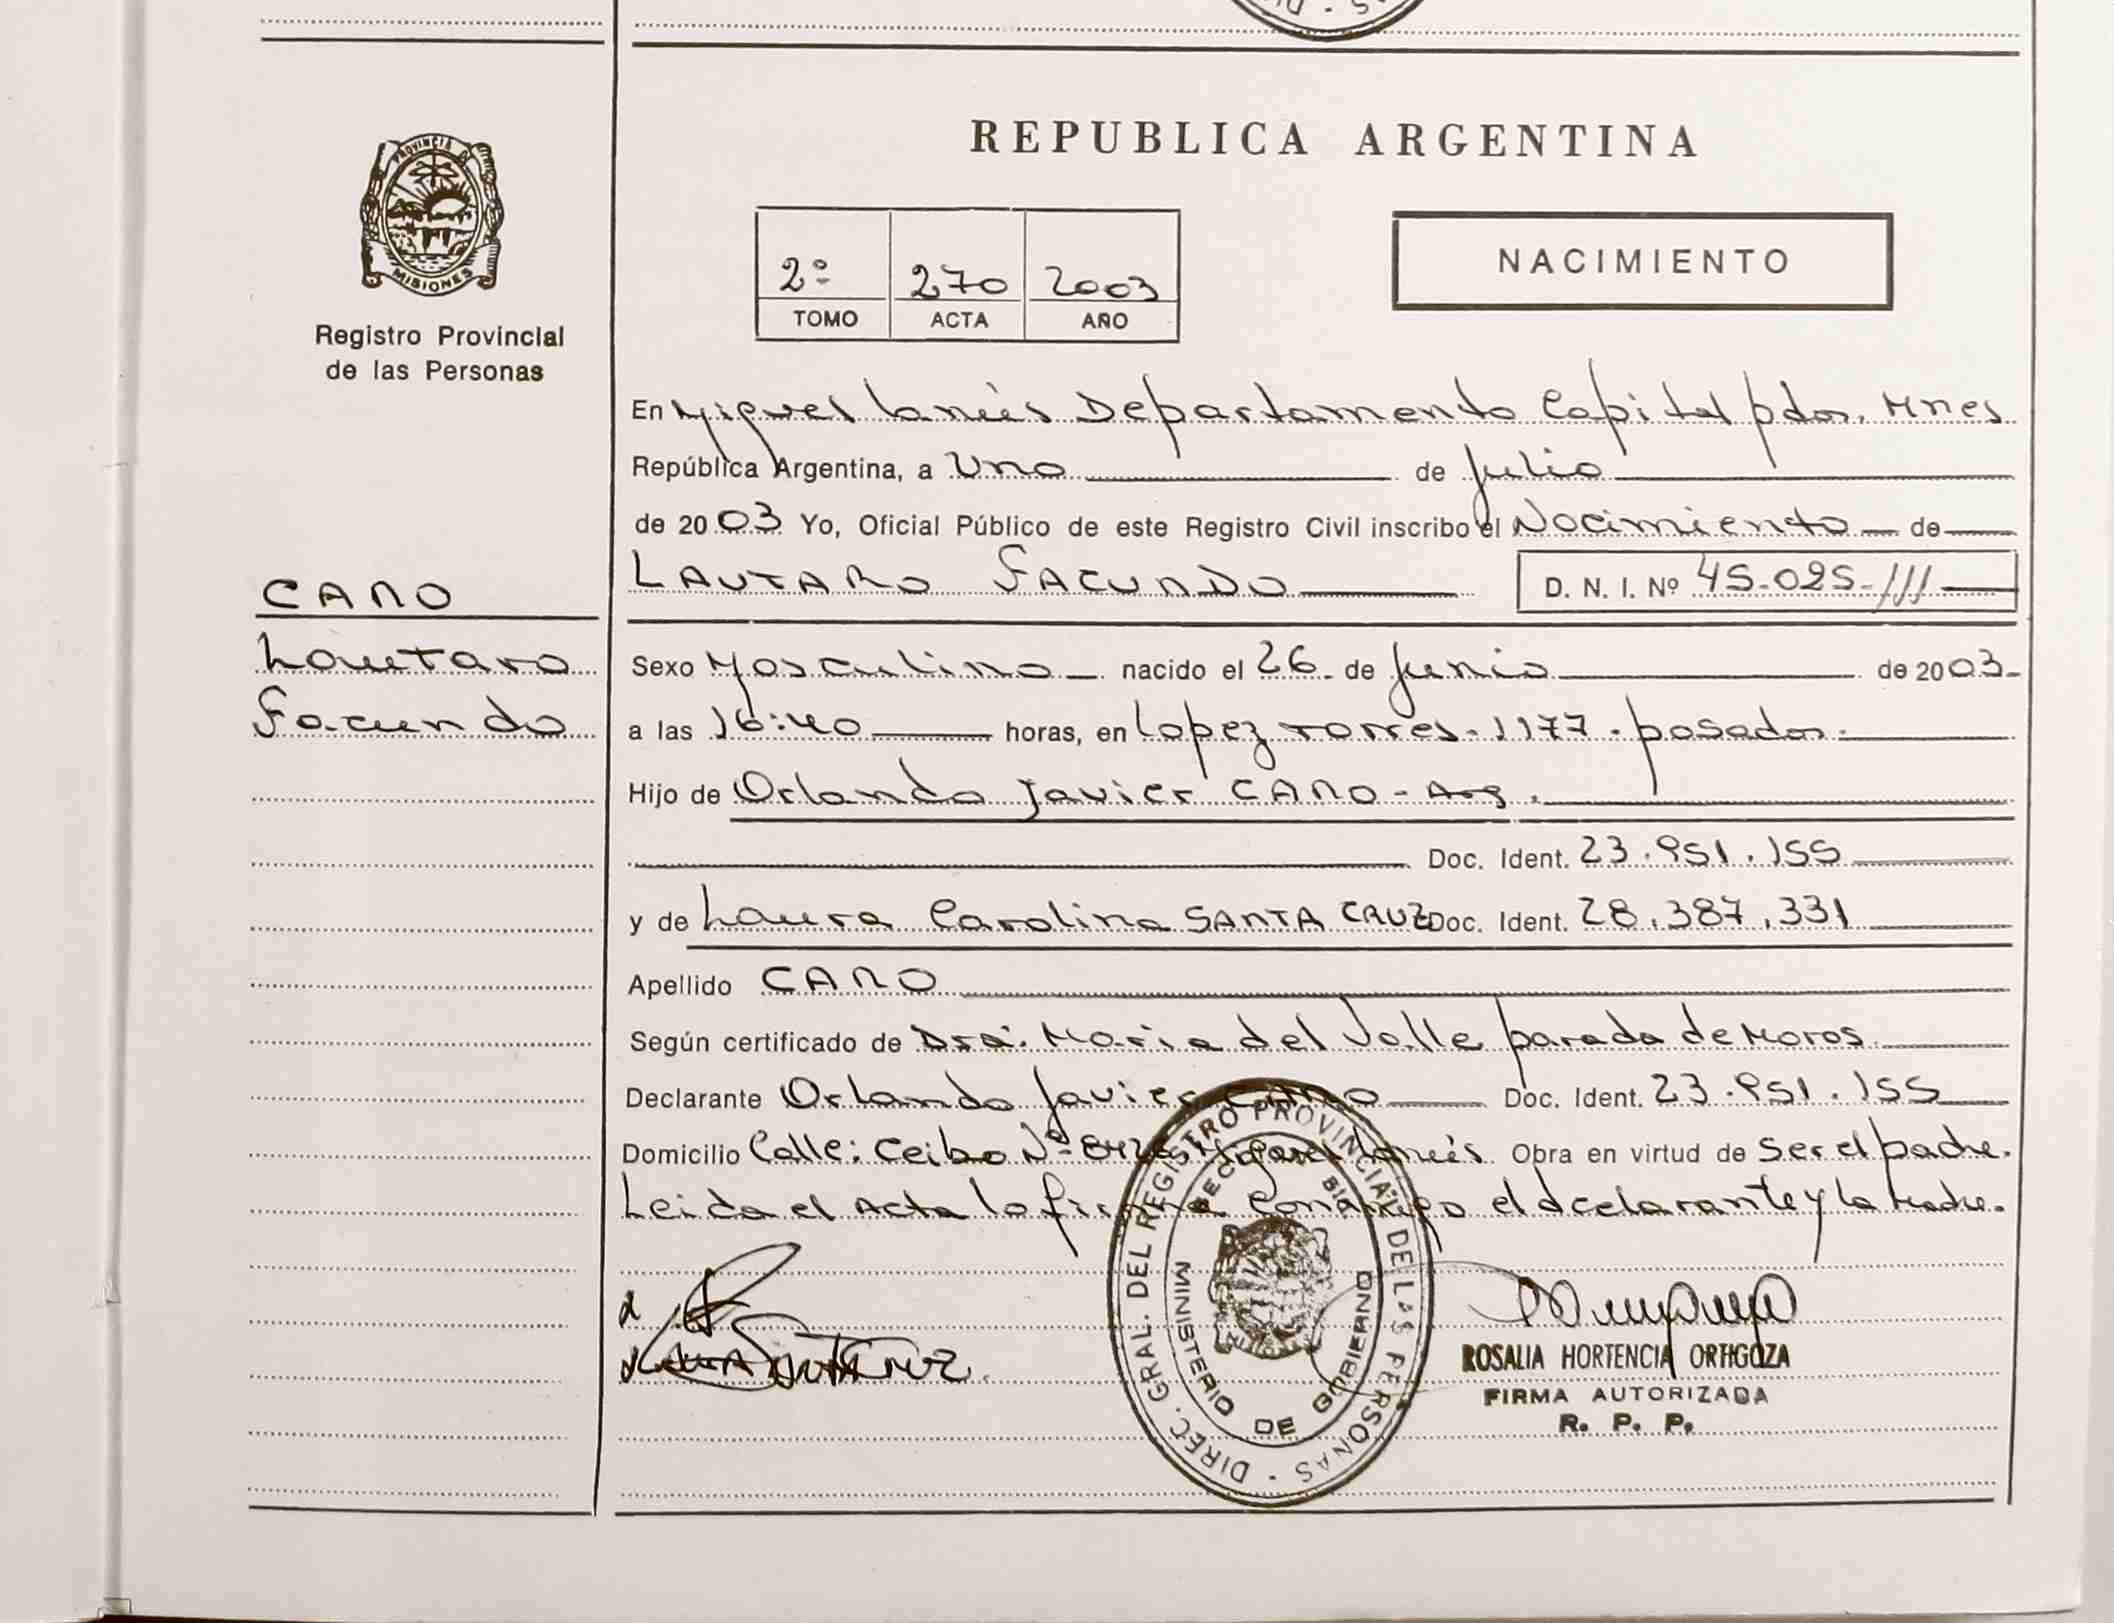 PROVINCIA DE
MISIONES
Registro Provincial
de las Personas
CANO
Lautaro
Facundo
REPUBLICA ARGENTINA
2º 270 2003
TOMO ACTA AÑO
NACIMIENTO
En Miguel Lanús Departamento Capital pdas. Mnes
República Argentina, a Uno de Julio
de 2003 Yo, Oficial Público de este Registro Civil inscribo el Nacimiento de
LAUTARO FACUNDO D. N. I. Nº 45-025-///
Sexo Masculino nacido el 26 de Junio de 2003
a las 16:40 horas, en Lopez Torres. 1177. posadas.
Hijo de Orlando Javier CANO - Arg.
Doc. Ident. 23.951.155
y de Laura Carolina SANTA CRUZ Doc. Ident. 28.387.331
Apellido CANO
Según certificado de Dra. Maria del Valle parada de Moros
Declarante Orlando Javier CANO Doc. Ident. 23.951.155
Domicilio Calle: Ceibo Nº Miguel Lanús. Obra en virtud de ser el padre.
Leida el Acta la firma conmigo el declarante y la Madre.
DIREC. GRAL. DEL REGISTRO PROVINCIAL DE LAS PERSONAS
MINISTERIO DE GOBIERNO
ROSALIA HORTENCIA ORTIGOZA
FIRMA AUTORIZADA
R. P. P.